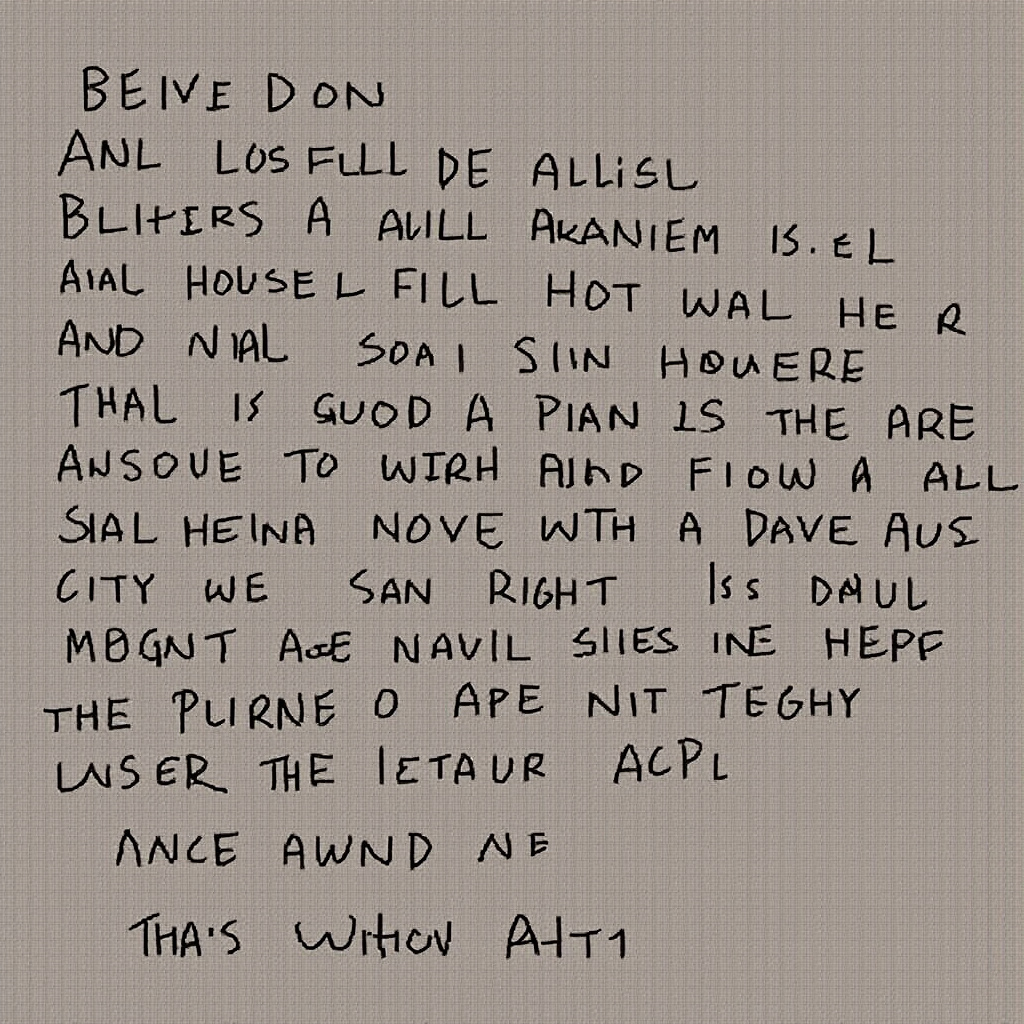 BEIVE DON
ANL LOS FLLL DE ALLISL
BLITERS A AUILL AKANIEM IS.EL
AIAL HOUSE L FILL HOT WAL HE R
AND NIAL SOAI SIIN HOUERE
THAL IS GUOD A PIAN IS THE ARE
ANSOUE TO WIRH AIHD FIOW A ALL
SIAL HEINA NOVE WTH A DAVE AUS
CITY WE SAN RIGHT ISS DAUL
MOGNT AEE NAVIL SIIES INE HEPF
THE PLIRNE O APE NIT TEGHY
WSER THE IETAUR ACPL
ANCE AWND NE
THA'S WITHOV AHT1